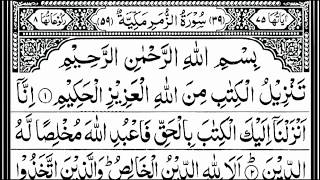 اٰيَاتُهَا ٧٥ (٣٩) سُوْرَةُ الزُّمَرِ مَكِّيَّةٌ (٥٩) رُكُوْعَاتُهَا ٨
بِسْمِ اللّٰهِ الرَّحْمٰنِ الرَّحِيْمِ
تَنْزِيْلُ الْكِتٰبِ مِنَ اللّٰهِ الْعَزِيْزِ الْحَكِيْمِ ① اِنَّاۤ
اَنْزَلْنَاۤ اِلَيْكَ الْكِتٰبَ بِالْحَقِّ فَاعْبُدِ اللّٰهَ مُخْلِصًا لَّهُ
الدِّيْنَ ② اَلَا لِلّٰهِ الدِّيْنُ الْخَالِصُ ؕ وَالَّذِيْنَ اتَّخَذُوْا